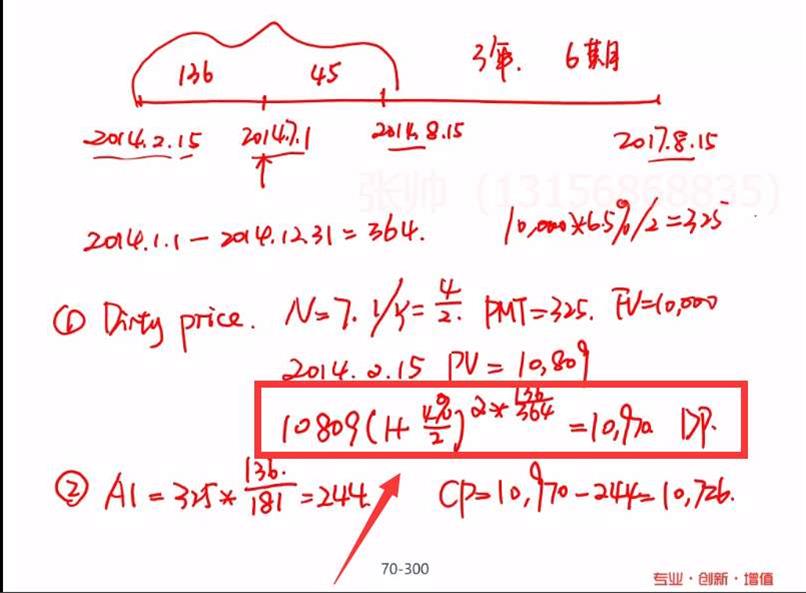 136 45 3年. 6期
2014.2.15 2014.7.1 2014.8.15 2017.8.15
张帅 (13156868835)
2014.1.1 - 2014.12.31 = 364. 10,000*6.5%/2=325
① Dirty price. N=7. I/Y=4/2. PMT=325. FV=10,000
2014.2.15 PV = 10,809
10809(1+4%/2)^2*136/364 =10,970 DP.
② AI = 325*136/181=244. CP=10,970-244=10,726.
70-300
专业·创新·增值